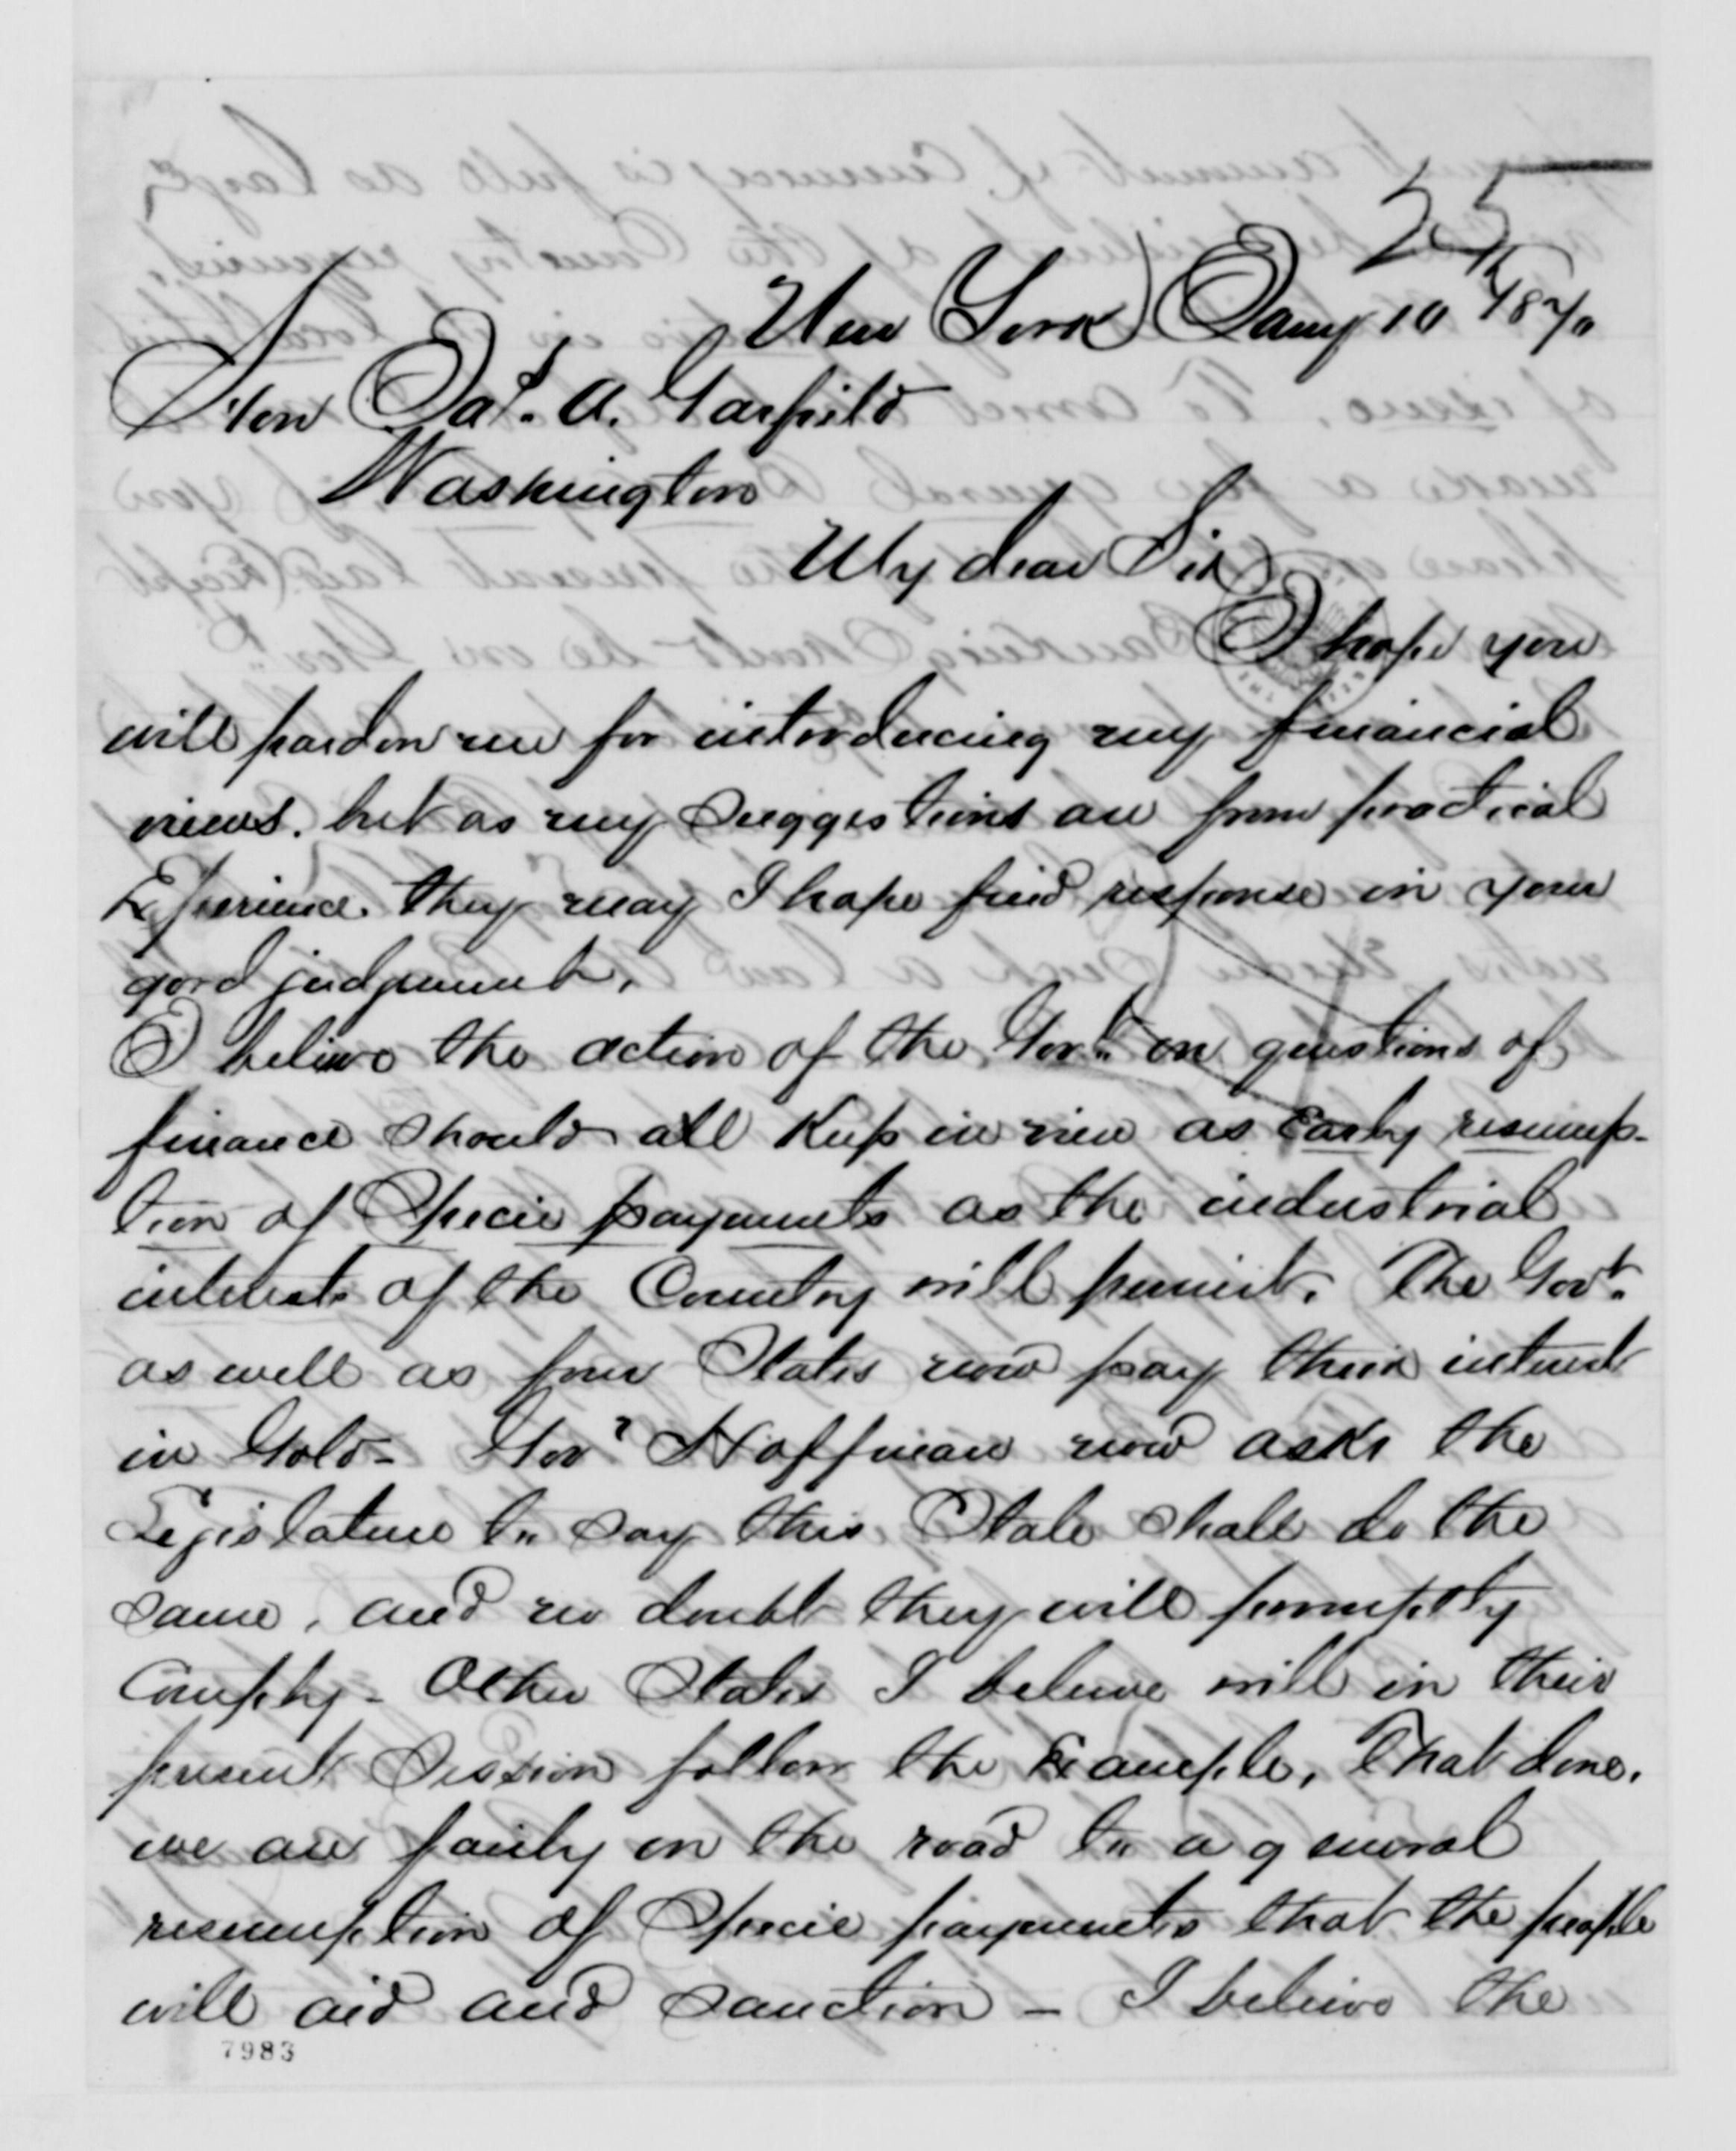 25
New York Jany 10th 1870
Hon Jas. A. Garfield
Washington
My dear Sir
I hope you
will pardon me for introducing my financial
views. but as my suggestions are from practical
Experience they may I hope find response in your
good judgement.
I believe the action of the Govt. on questions of
finance should all keep in view as Early resump-
tion of Specie payments as the industrial
interests of the Country will permit. The Govt.
as well as four States now pay their interest
in Gold - Govr Hoffman now asks the
Legislature to say this State shall do the
same, and no doubt they will promptly
Comply - Other States I believe will in their
present Session follow the Example, That done,
we are fairly on the road to a general
resumption of Specie payments that the people
will aid and Sanction - I believe the
7983